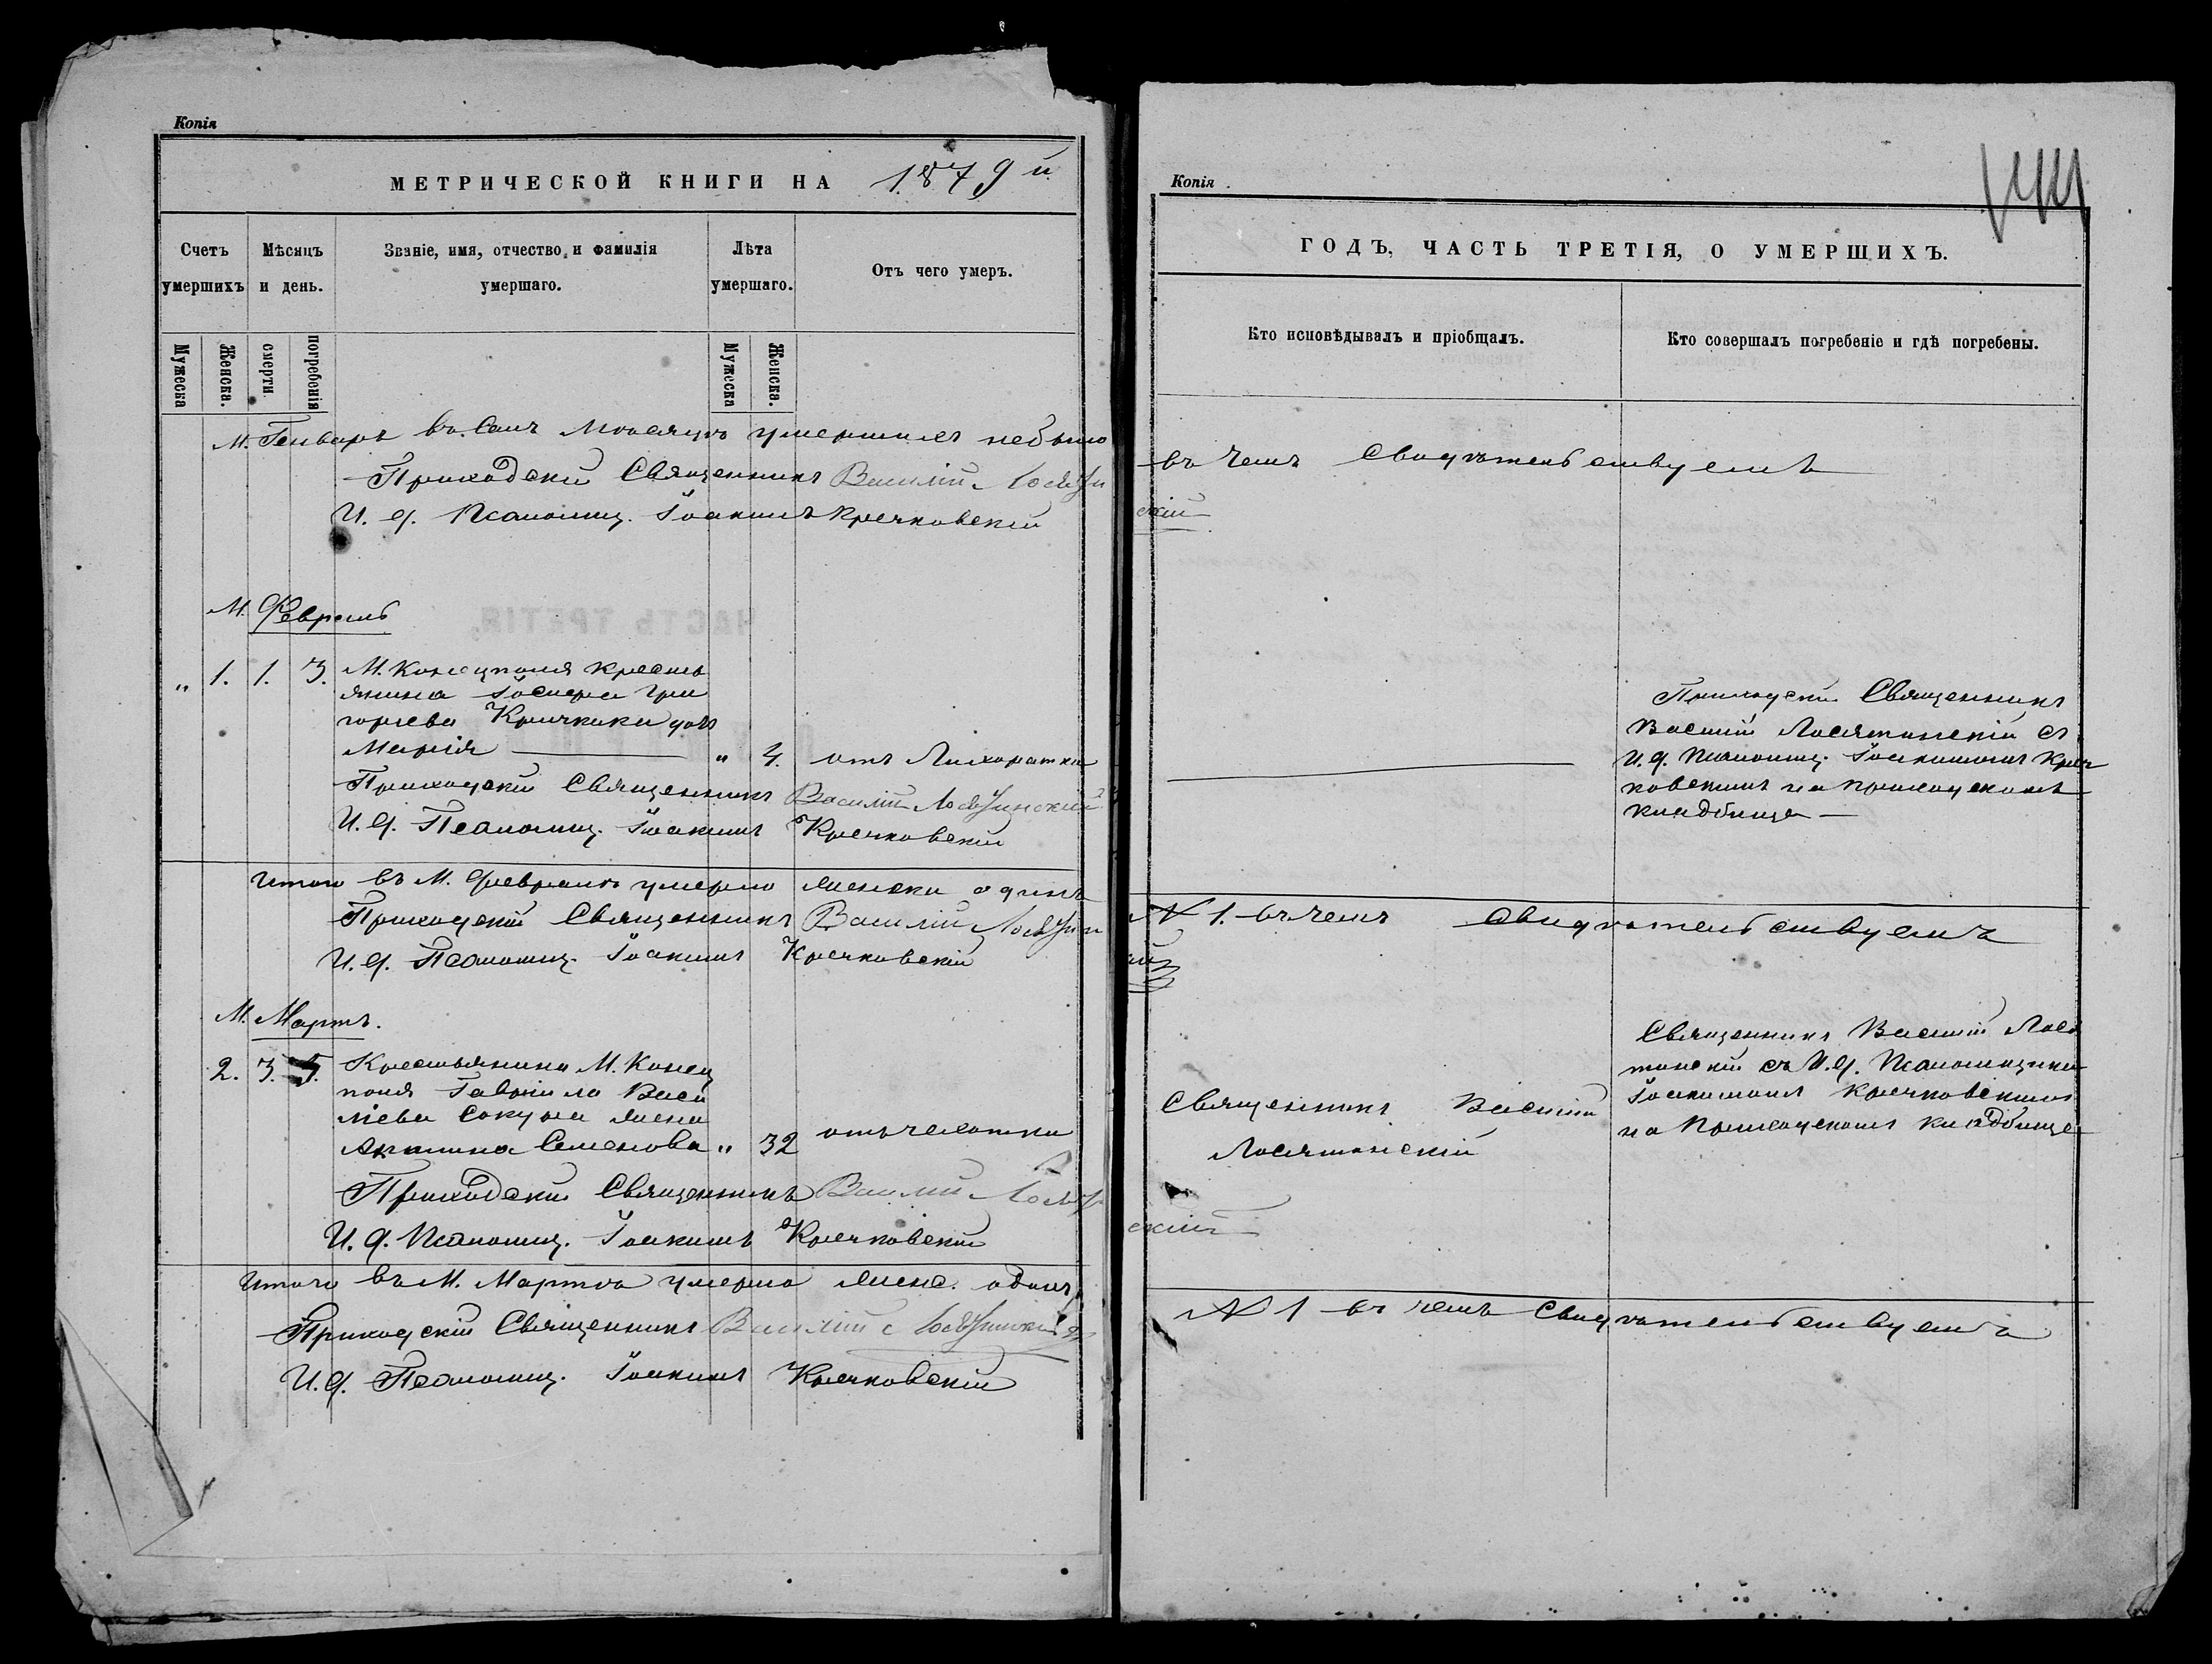 Копія
МЕТРИЧЕСКОЙ КНИГИ НА 1879 й
Счетъ умершихъ
Мѣсяцъ и день.
Званіе, имя, отчество и фамилія умершаго.
Лѣта умершаго.
Отъ чего умеръ.
Мужеска
Женска.
смерти.
погребенія
Мужеска
Женска.
М. Генварь въ семъ мѣсяцѣ умершихъ небыло
Приходскій Священникъ Василій Лосятин
И. д. Псаломщ. Іоакимъ Кречковскій
М. Февраль
„ 1. 1. 3. М. Конецполя кресть
янина Іосифа Гри
горьева Кричкики дочь
Марія „ 4. отъ Лихорадки
Приходскій Священникъ Василій Лосятинскій
И. д. Псаломщ. Іоакимъ Кречковскій
Итого въ М. Февралѣ умерло женска одинъ
Приходскій Священникъ Василій Лосятин
И. д. Псаломщ. Іоакимъ Кречковскій
М. Мартъ.
2. 3. 5. Крестьянина М. Конец
поля Гавріила Васи
ліева Сокура жена
Акилина Семенова „ 32 отъ чехотки
Приходскій Священникъ Василій Лосятин
И. д. Псаломщ. Іоакимъ Кречковскій
Итого въ М. Мартѣ умерло женс. одинъ
Приходскій Священникъ Василій Лосятинскій
И. д. Псаломщ. Іоакимъ Кречковскій
Копія
ГОДЪ, ЧАСТЬ ТРЕТІЯ, О УМЕРШИХЪ.
Кто исповѣдывалъ и пріобщалъ.
Кто совершалъ погребеніе и гдѣ погребены.
въ чемъ свидѣтельствуемъ
скій
Приходскій Священникъ
Василій Лосятинскій съ
И. д. Псаломщ. Іоакимомъ Креч
ковскимъ на приходскомъ
кладбище
№ 1. въ чемъ свидѣтельствуемъ
Священникъ Василій
Лосятинскій
Священникъ Василій Лося
тинскій съ И. д. Псаломщика
Іоакимомъ Кречковскимъ
на приходскомъ кладбище
скій
№ 1 въ чемъ свидѣтельствуемъ